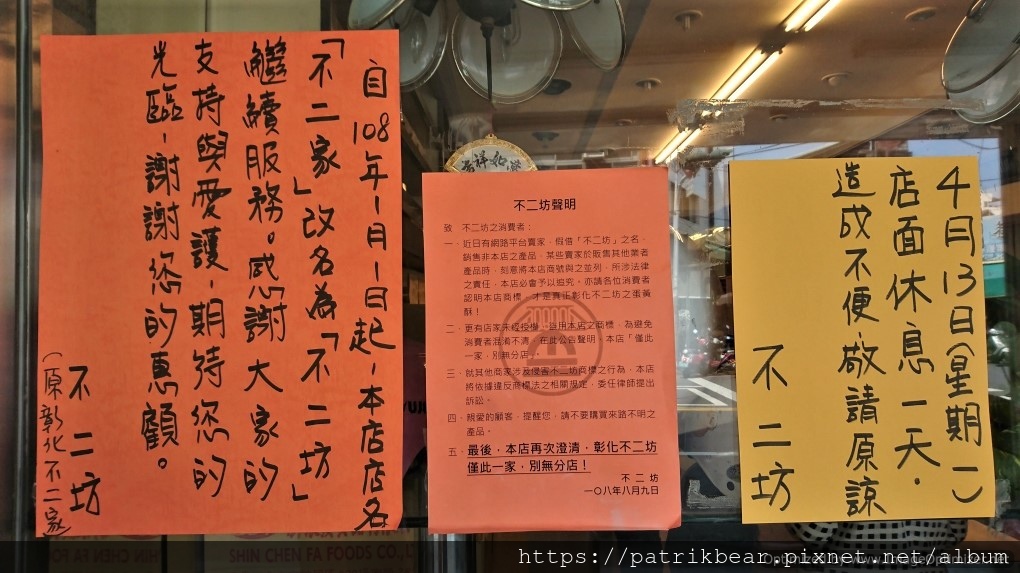 自108年1月1日起，本店店名
「不二家」改名為「不二坊」
繼續服務。感謝大家的
支持與愛護，期待您的
光臨，謝謝您的惠顧。
不二坊
(原彰化不二家)
吉祥如意
不二坊聲明
致 不二坊之消費者：
一、近日有網路平台賣家，假借「不二坊」之名，
銷售非本店之產品，某些賣家於販售其他業者
產品時，刻意將本店商號與之並列，所涉法律
之責任，本店必會予以追究，亦請各位消費者
認明本店商標，才是真正彰化不二坊之蛋黃
酥！
二、更有店家未經授權，盜用本店之商標，為避免
消費者混淆不清，在此公告聲明，本店「僅此
一家，別無分店」。
三、就其他商家涉及侵害不二坊商標之行為，本店
將依據違反商標法之相關規定，委任律師提出
訴訟。
四、親愛的顧客，提醒您，請不要購買來路不明之
產品。
五、最後，本店再次澄清，彰化不二坊
僅此一家，別無分店！
不二坊
一〇八年八月九日
4月13日(星期一)
店面休息一天．
造成不便，敬請原諒
不二坊
SHIN CHEN FA FOODS CO., LT
https://patrikbear.pixnet.net/album